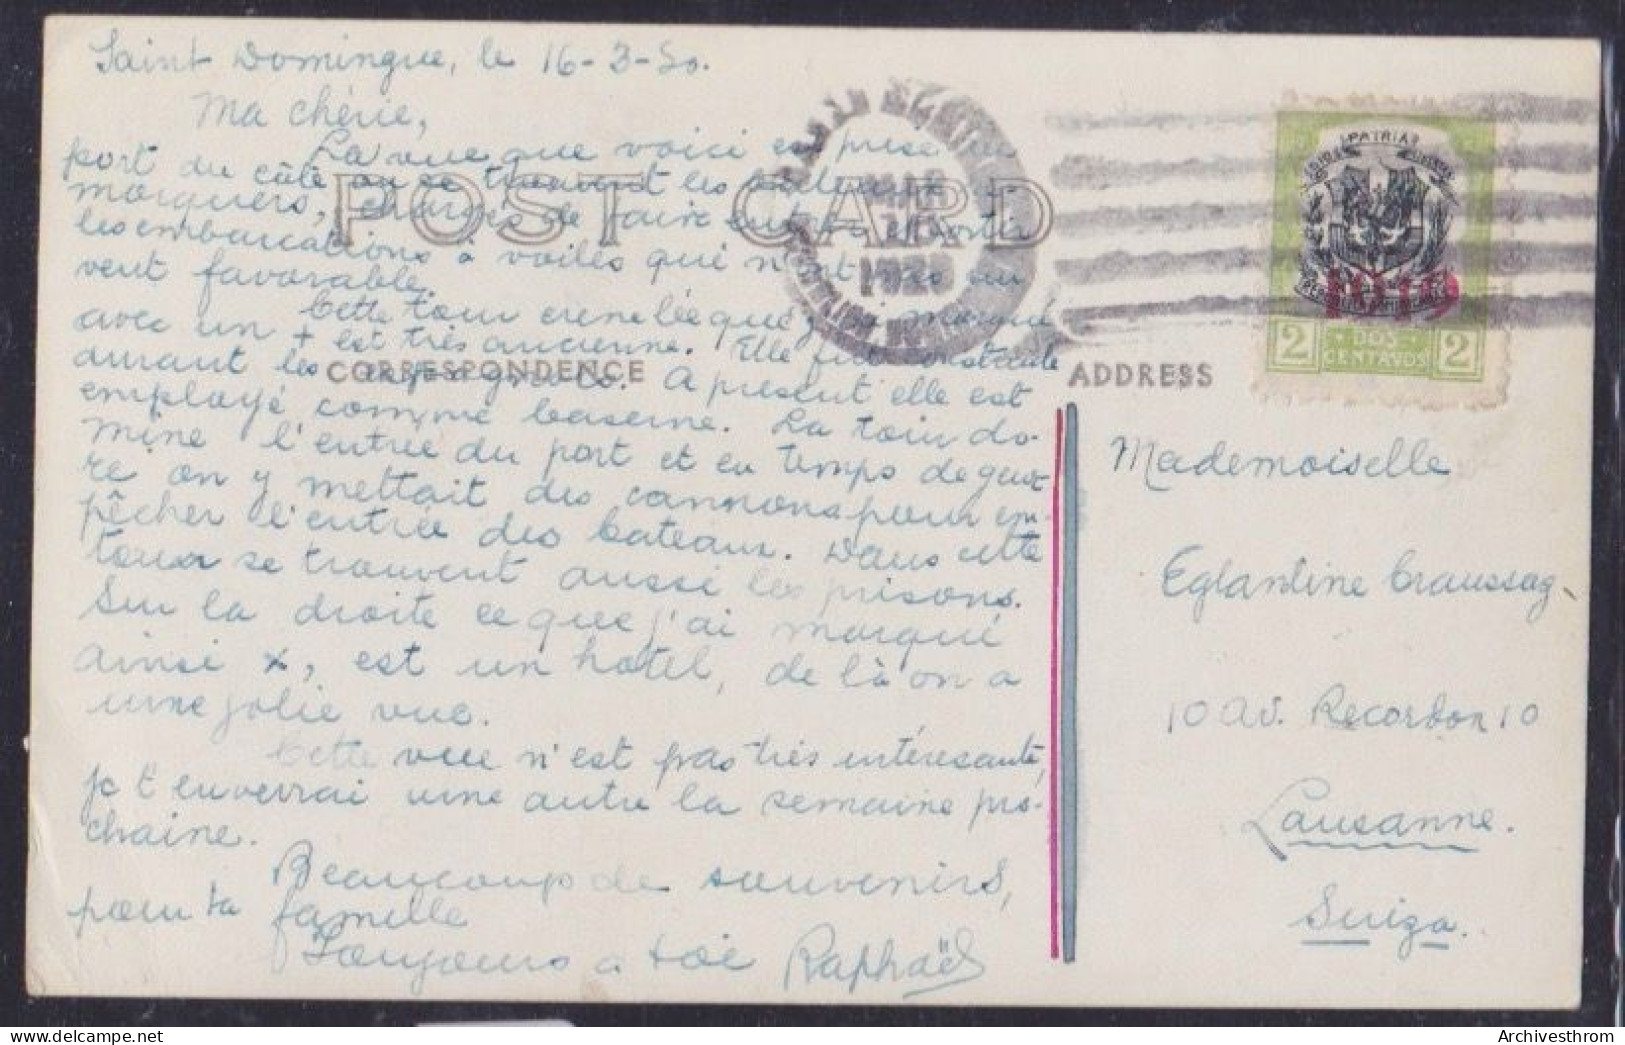 Saint Domingue, le 16-3-20.
Ma chérie,
La vue que voici est prise du
port du côté où se trouvent les remorqueurs
chargés de faire entrer et sortir
les embarcations à voiles qui n'ont pas un
vent favorable.
Cette tour crenelée que j'ai marqué
avec un + est très ancienne. Elle fut construite
durant les espagnols. A présent elle est
employé comme caserne. La tour do-
mine l'entrée du port et en temps de guer-
re on y mettait des cannons pour em-
pêcher l'entrée des bateaux. Dans cette
tour se trouvent aussi les prisons.
Sur la droite ce que j'ai marqué
ainsi x, est un hotel, de là on a
une jolie vue.
Cette vue n'est pas très intéresante,
je t'enverrai une autre la semaine pro-
chaine.
Beaucoup de souvenirs,
pour ta famille
Toujours a toi Raphaël
POST CARD
CORRESPONDENCE
ADDRESS
MAR
1920
PATRIA
1919
2 DOS CENTAVOS 2
Mademoiselle
Eglantine Craussaz
10 av. Recordon 10
Lausanne.
Suiza.
Archivesthrom